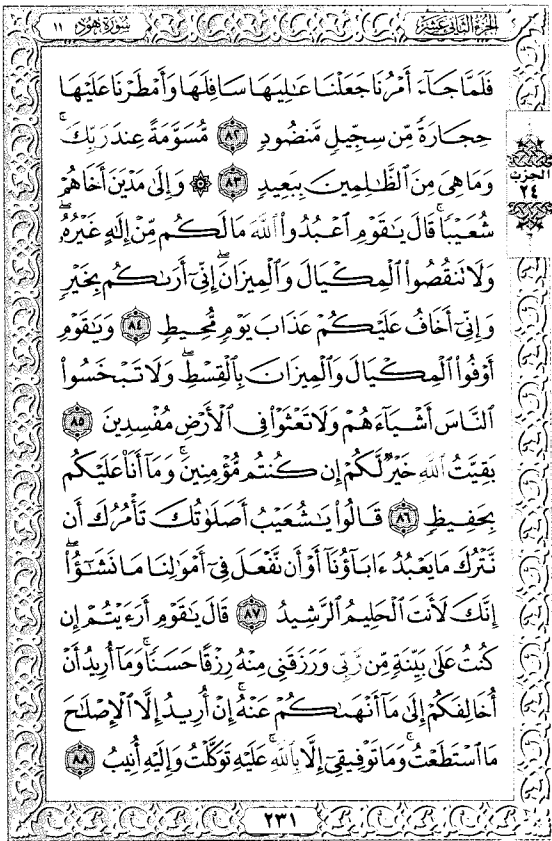 الجزء الثاني عشر
سورة هود ١١
فَلَمَّا جَآءَ أَمْرُنَا جَعَلْنَا عَـٰلِيَهَا سَافِلَهَا وَأَمْطَرْنَا عَلَيْهَا
حِجَارَةً مِّن سِجِّيلٍ مَّنضُودٍ ٨٢ مُّسَوَّمَةً عِندَ رَبِّكَ ۖ
وَمَا هِىَ مِنَ ٱلظَّـٰلِمِينَ بِبَعِيدٍ ٨٣ ۞ وَإِلَىٰ مَدْيَنَ أَخَاهُمْ
الحزب
٢٤
شُعَيْبًا ۚ قَالَ يَـٰقَوْمِ ٱعْبُدُوا۟ ٱللَّهَ مَا لَكُم مِّنْ إِلَـٰهٍ غَيْرُهُۥ ۖ
وَلَا تَنقُصُوا۟ ٱلْمِكْيَالَ وَٱلْمِيزَانَ ۚ إِنِّىٓ أَرَىٰكُم بِخَيْرٍ
وَإِنِّىٓ أَخَافُ عَلَيْكُمْ عَذَابَ يَوْمٍ مُّحِيطٍ ٨٤ وَيَـٰقَوْمِ
أَوْفُوا۟ ٱلْمِكْيَالَ وَٱلْمِيزَانَ بِٱلْقِسْطِ ۖ وَلَا تَبْخَسُوا۟
ٱلنَّاسَ أَشْيَآءَهُمْ وَلَا تَعْثَوْا۟ فِى ٱلْأَرْضِ مُفْسِدِينَ ٨٥
بَقِيَّتُ ٱللَّهِ خَيْرٌ لَّكُمْ إِن كُنتُم مُّؤْمِنِينَ ۚ وَمَآ أَنَا۠ عَلَيْكُم
بِحَفِيظٍ ٨٦ قَالُوا۟ يَـٰشُعَيْبُ أَصَلَوٰتُكَ تَأْمُرُكَ أَن
نَّتْرُكَ مَا يَعْبُدُ ءَابَآؤُنَآ أَوْ أَن نَّفْعَلَ فِىٓ أَمْوَٰلِنَا مَا نَشَـٰٓؤُا۟ ۖ
إِنَّكَ لَأَنتَ ٱلْحَلِيمُ ٱلرَّشِيدُ ٨٧ قَالَ يَـٰقَوْمِ أَرَءَيْتُمْ إِن
كُنتُ عَلَىٰ بَيِّنَةٍ مِّن رَّبِّى وَرَزَقَنِى مِنْهُ رِزْقًا حَسَنًا ۚ وَمَآ أُرِيدُ أَنْ
أُخَالِفَكُمْ إِلَىٰ مَآ أَنْهَىٰكُمْ عَنْهُ ۚ إِنْ أُرِيدُ إِلَّا ٱلْإِصْلَـٰحَ
مَا ٱسْتَطَعْتُ ۚ وَمَا تَوْفِيقِىٓ إِلَّا بِٱللَّهِ ۚ عَلَيْهِ تَوَكَّلْتُ وَإِلَيْهِ أُنِيبُ ٨٨
٢٣١